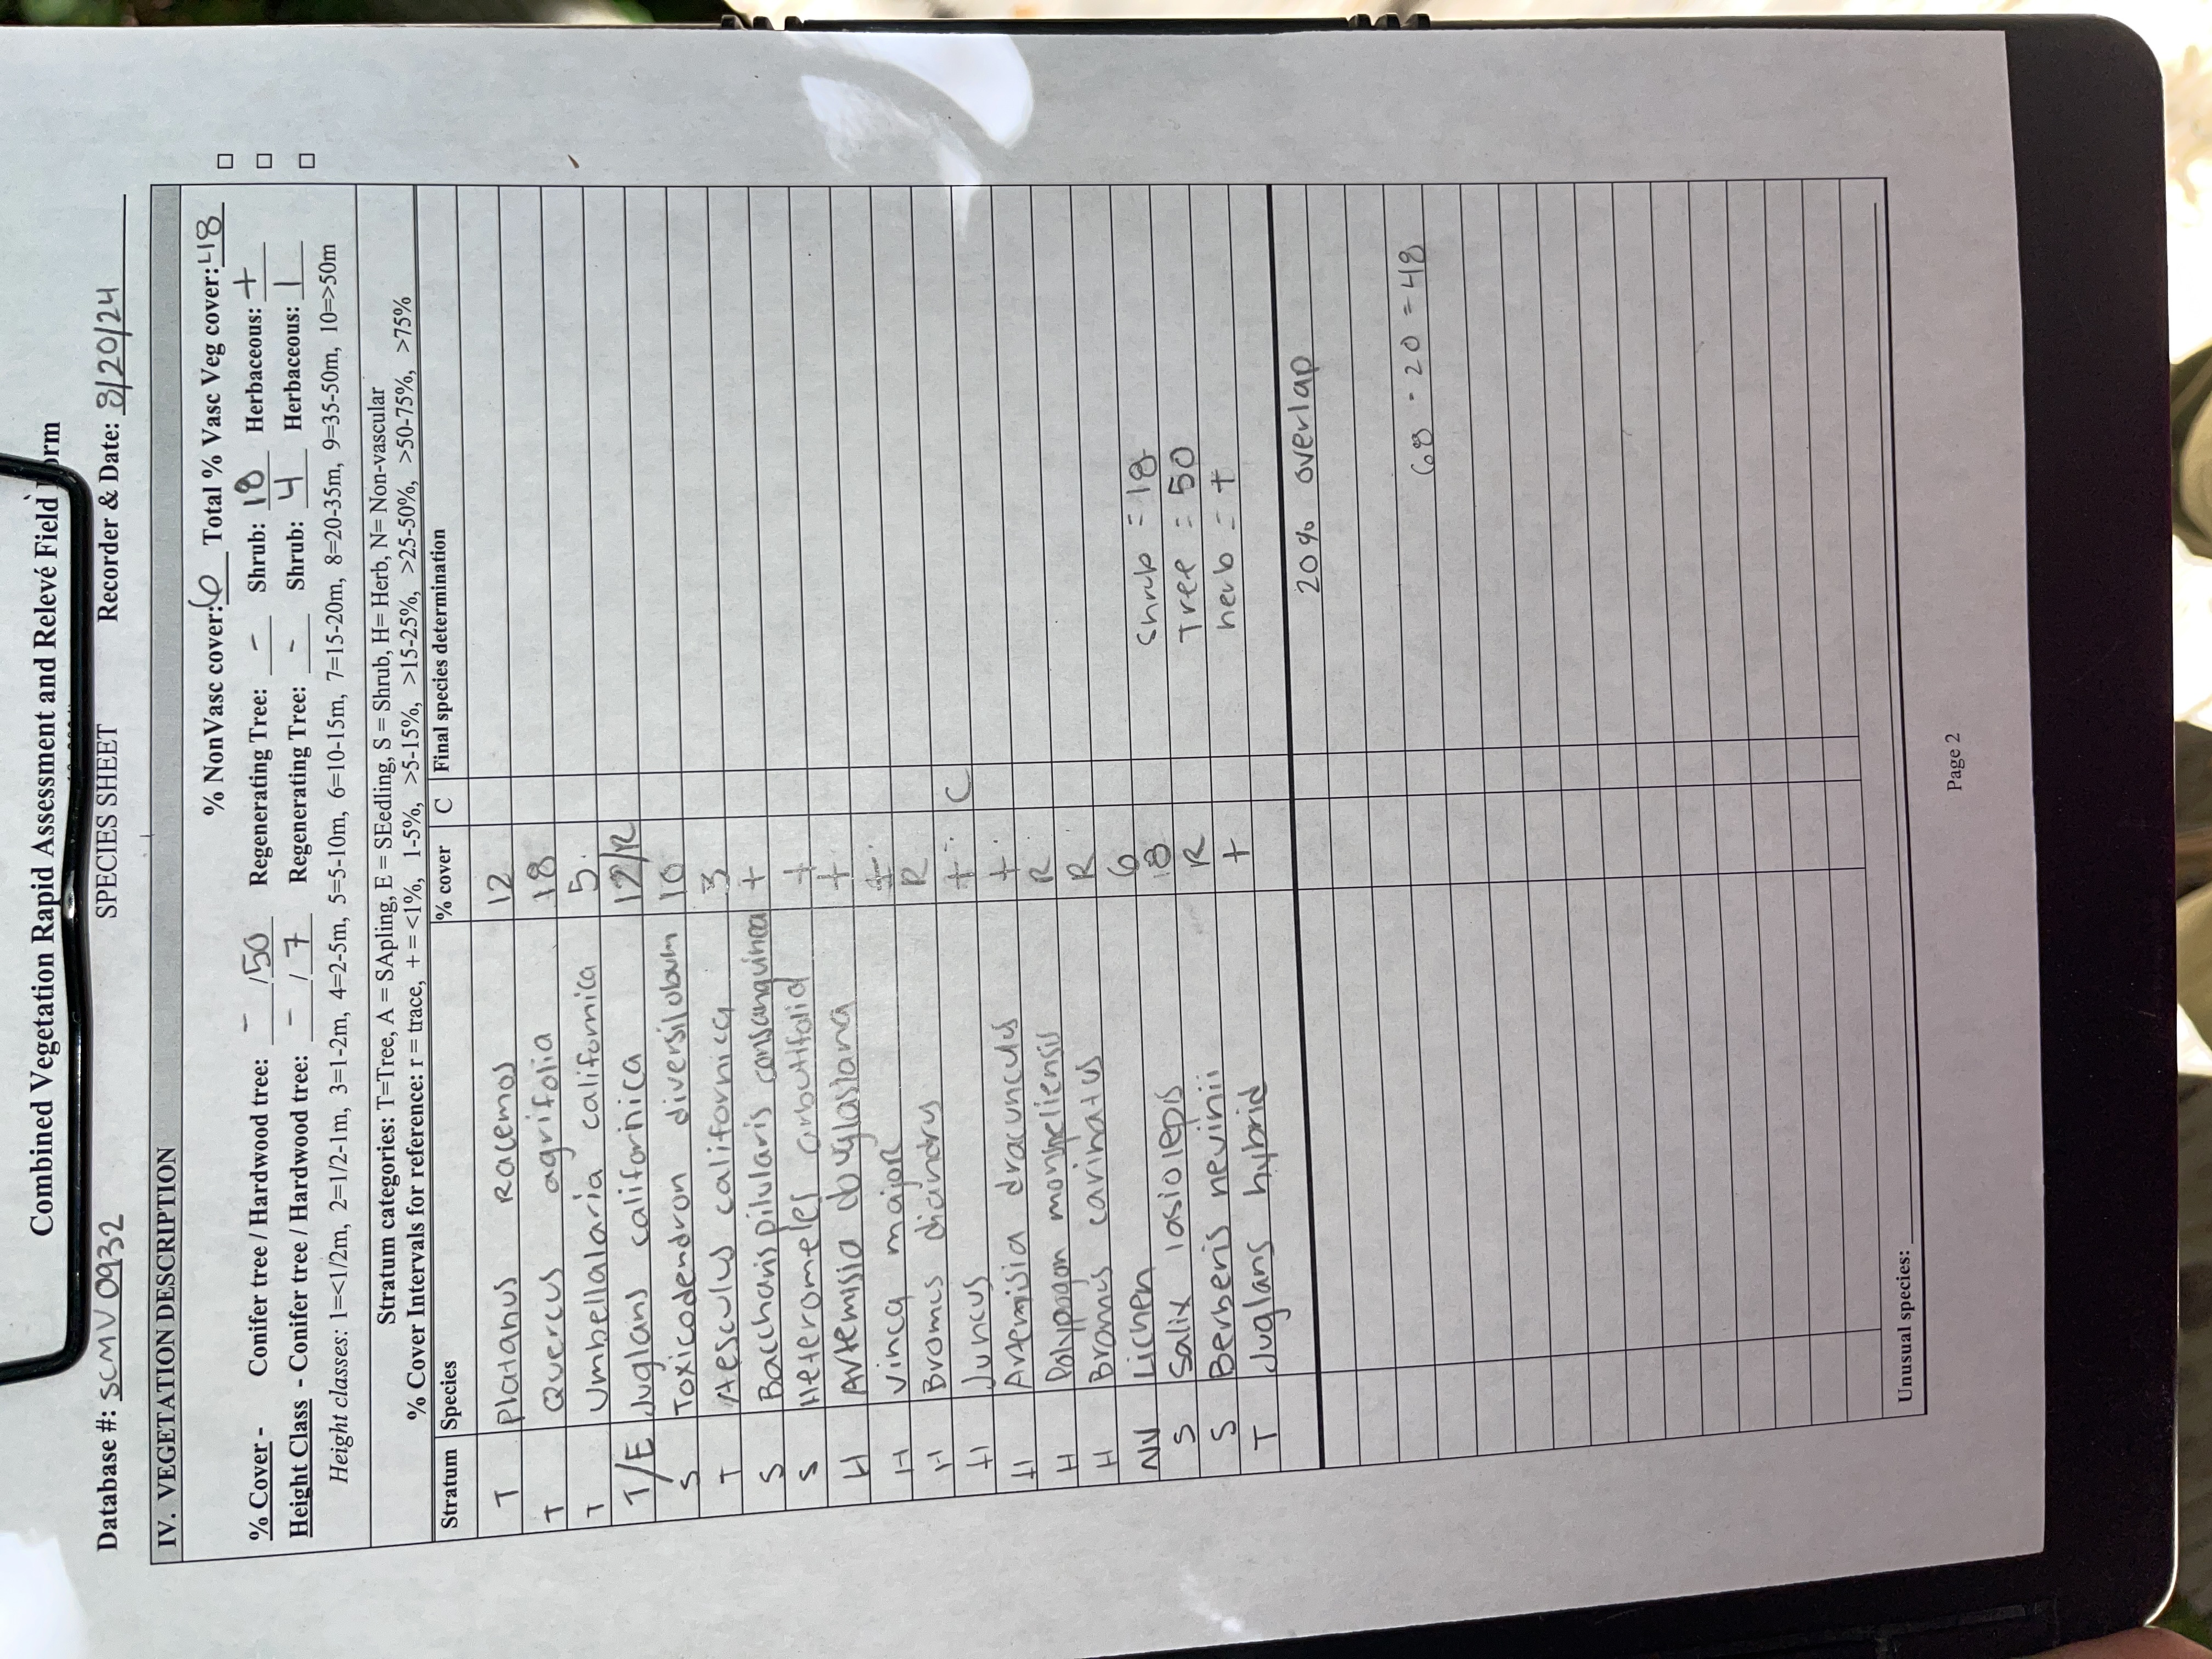 Combined Vegetation Rapid Assessment and Relevé Field Form
Database #: SCMV0932 SPECIES SHEET Recorder & Date: 8/20/24
IV. VEGETATION DESCRIPTION
% NonVasc cover: 6 Total % Vasc Veg cover: 48
% Cover - Conifer tree / Hardwood tree: - / 50 Regenerating Tree: - Shrub: 18 Herbaceous: +
Height Class - Conifer tree / Hardwood tree: - / 7 Regenerating Tree: - Shrub: 4 Herbaceous: 1
Height classes: 1=<1/2m, 2=1/2-1m, 3=1-2m, 4=2-5m, 5=5-10m, 6=10-15m, 7=15-20m, 8=20-35m, 9=35-50m, 10=>50m
Stratum categories: T=Tree, A = SApling, E = SEedling, S = Shrub, H= Herb, N= Non-vascular
% Cover Intervals for reference: r = trace, + = <1%, 1-5%, >5-15%, >15-25%, >25-50%, >50-75%, >75%
Stratum Species % cover C Final species determination
T Platanus racemos 12
T Quercus agrifolia 18
T Umbellalaria californica 5
T/E Juglans californica 12/R
S Toxicodendron diversilobum 10
T Aesculus californica 3
S Baccharis pilularis consanguinea +
S Heteromeles arbutifolia +
H Artemisia douglasiana +
H Vinca major +
H Bromus diandrus R
H Juncus + C
H Artemisia dracunculus +
H Polypogon monspeliensis R
H Bromus carinatus R
NV Lichen 6
S Salix lasiolepis 18 Shrub = 18
S Berberis nevinii R Tree = 50
T Juglans hybrid + herb = +
20% overlap
68 - 20 = 48
Unusual species:
Page 2